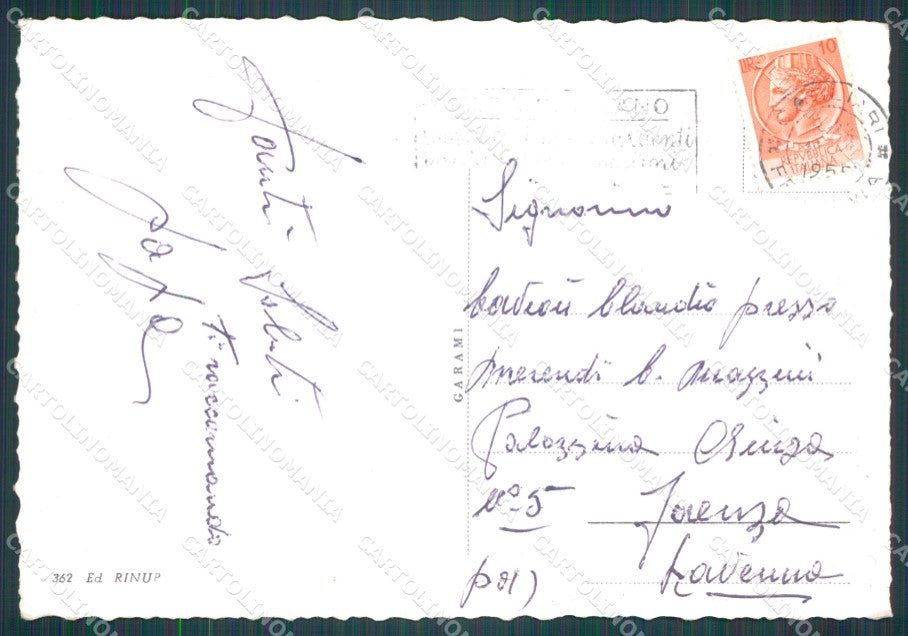 Tanti Saluti
Papà
ti raccomando
362 Ed RINUP
GARAMI
LIRE 10
REPVBBLICA
ITALIANA
Signorino
Claudio presso
Merendi C. Mazzini
Palazzina
N° 5 Faenza
Ravenna
CARTOLINOMANIA